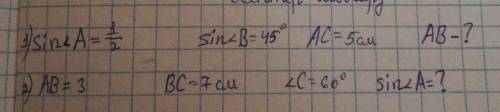 1) sin∠A = 1/2 sin∠B = 45° AC = 5см AB - ?
2) AB = 3 BC = 7 см ∠C = 60° sin∠A = ?